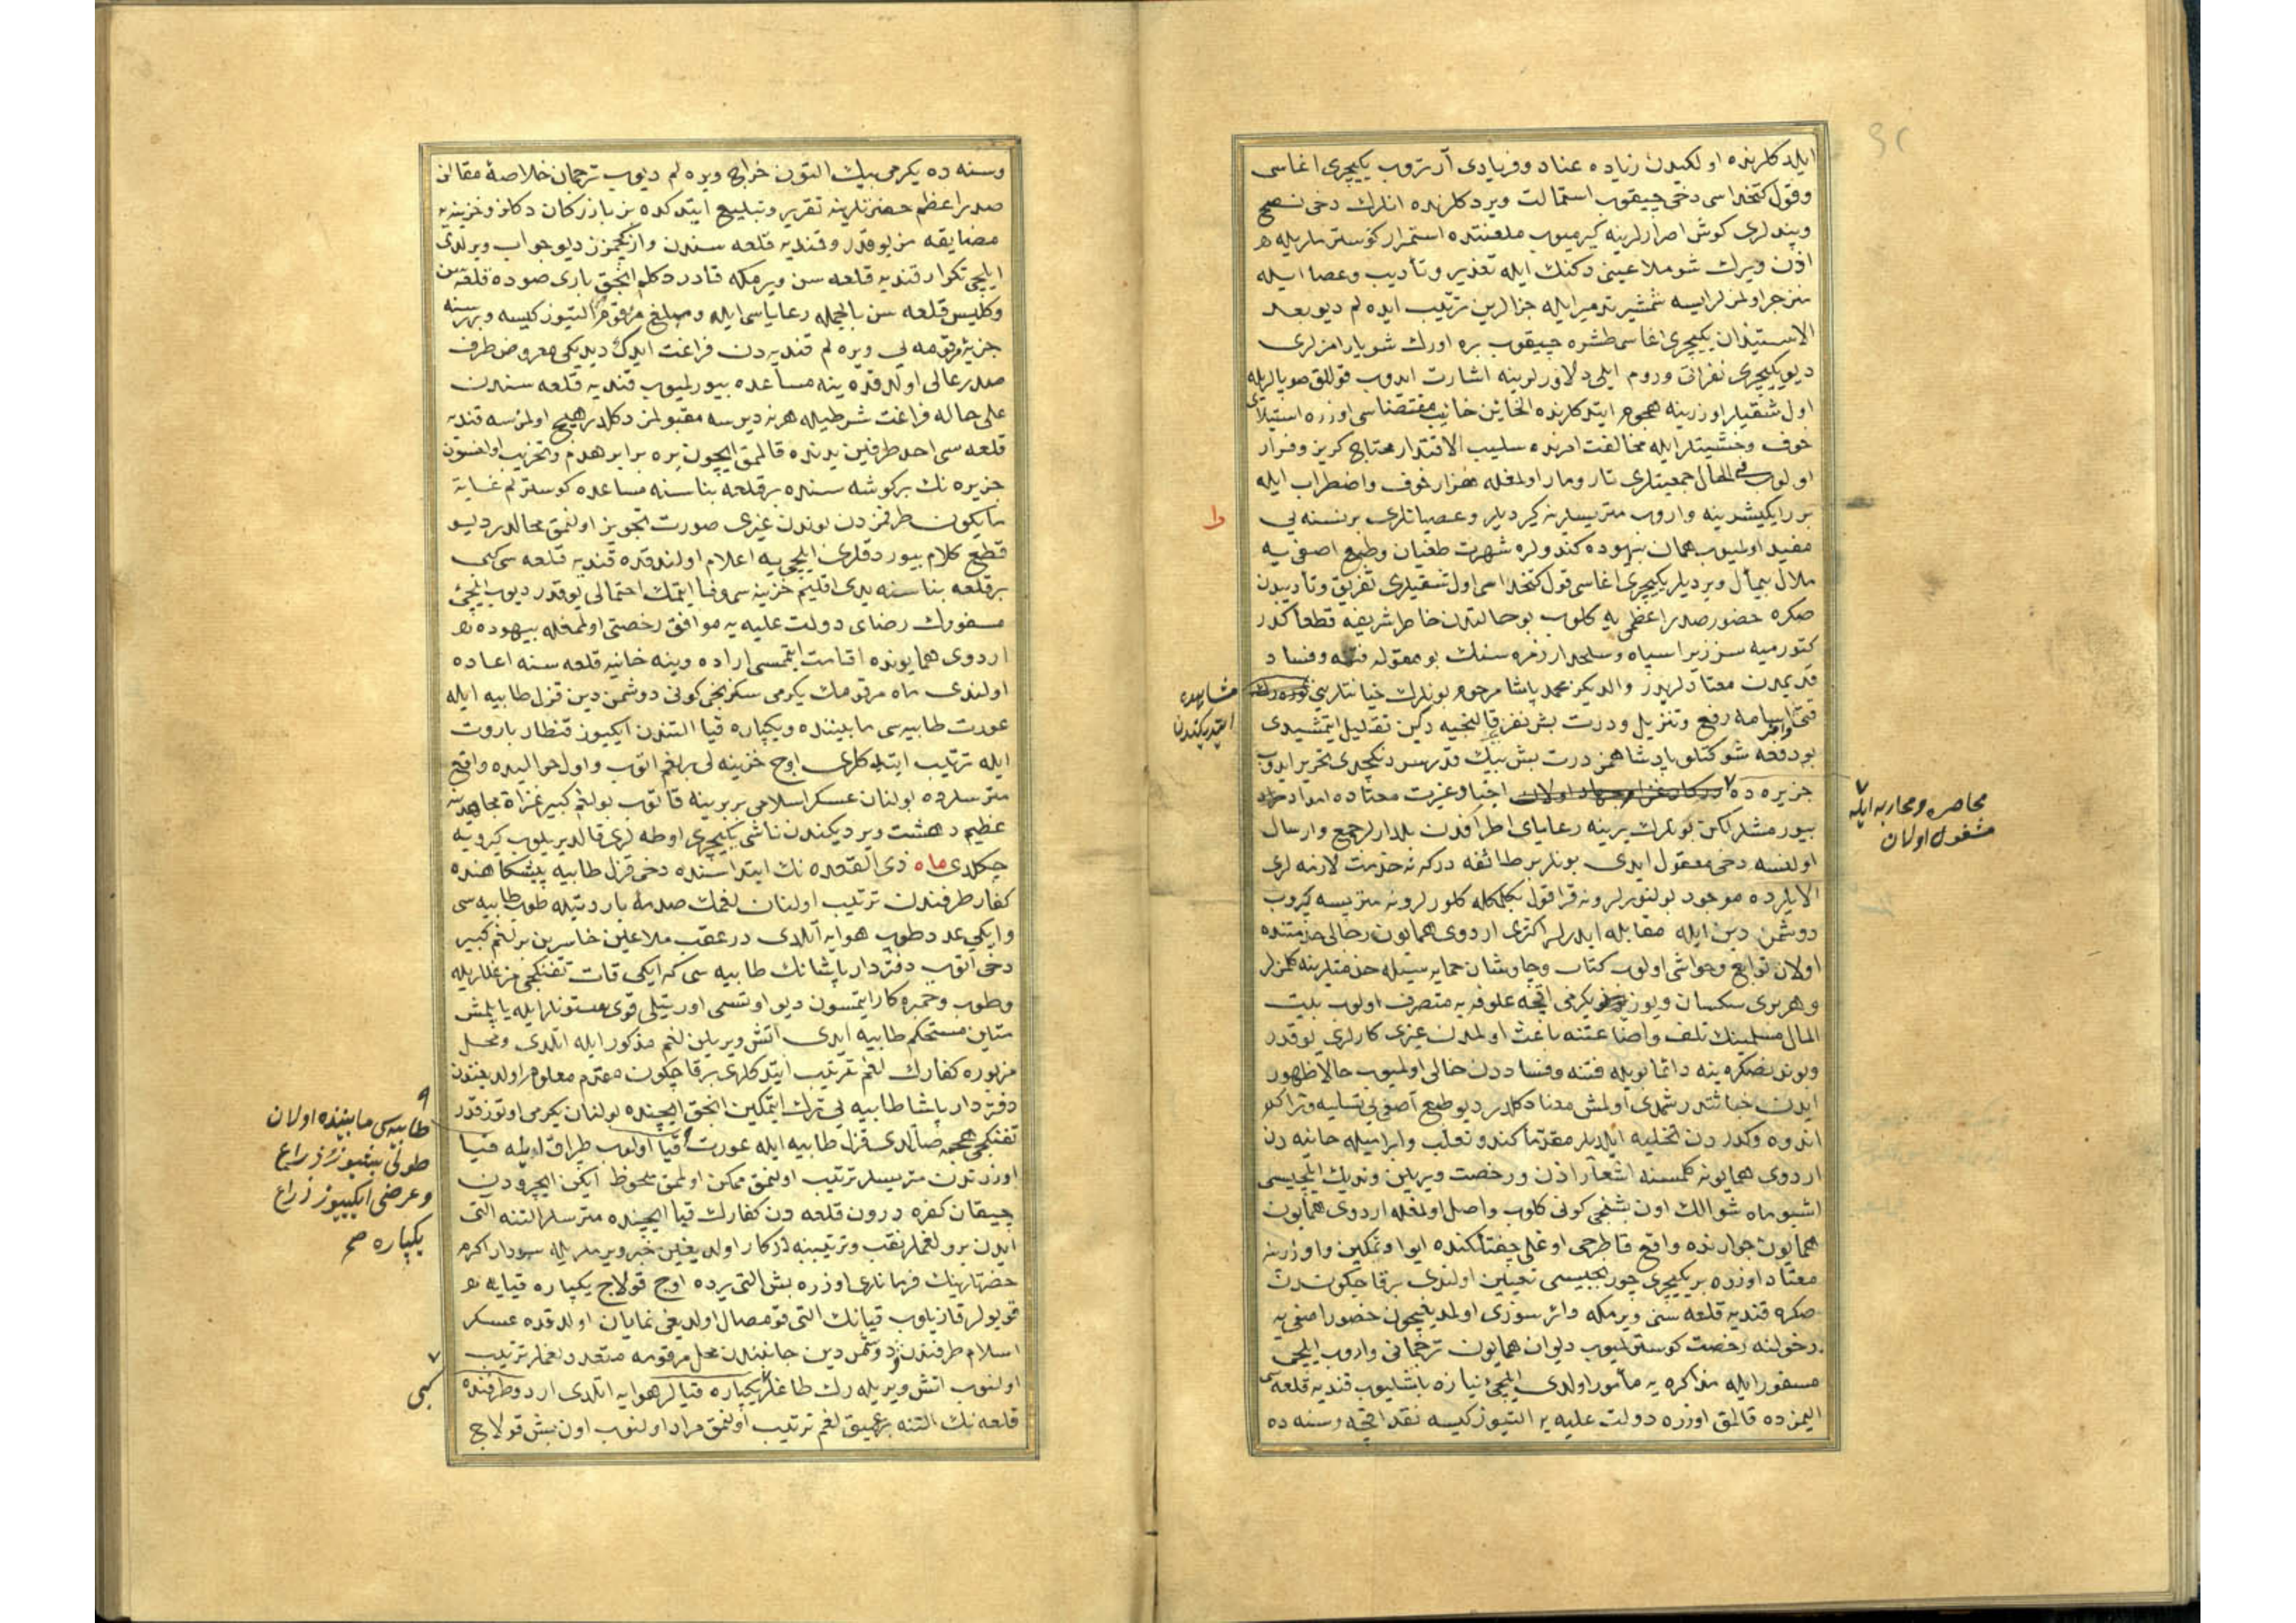 ایلدکلرنده اولکیدن زیاده عناد و فریادی آرتروب یکیچری اغاسی
و قول کتخداسی دخی چیقوب استمالت ویردکلرنده انلرك دخی نصح
و پندلری کوش اصرارلرینه کیرمیوب ملعنتده استمرار کوستردیلر یله
اذن ویرك شو ملاعینی دکنك ایله تعذیر و تأدیب و عصا ایله
منزجر اولمزلرایسه شمشیر تدمیر ایله جزالرین ترتیب ایده لم دیو بعد
الاستیذان یکیچری اغاسی طشره چیقوب بره اورك شو یارامزلری
دیو یکیچری نفراتی و روم ایلی دلاورلرینه اشارت ایدوب قوللق صوپالریله
اول شقیلر اوزرینه هجوم ایتدکلرنده الخائن خائف مقتضاسی اوزره استیلای
خوف و خشیتلر ایله مخالفت امرنده سلیب الاقتدار محتاج کریز و فرار
اولوب فی الحال جمعیتلری تارومار اولمغله هزار خوف و اضطراب ایله
برر ایکیشر ینه واروب متریسلرنه کیردیلر و عصیانلری بر نسنه یی
مفید اولمیوب همان بیهوده کندولره شهرت طغیان و طبع اصفی یه
ملال بیمأل ویردیلر یکیچری اغاسی قول کتخداسی اول شقیلری تفریق و تأدیبدن
صکره حضور صدر اعظمی یه کلوب بو حالتدن خاطر شریفه قطعا کدر
کتورمیه سز زیرا سپاه و سلحدار زمره سنك بو مقوله فتنه و فساد
قدیمدن معتادلریدر والدیکز محمد پاشا مرحوم بونلرك خیانتلرینی
مشاهده
ایتدیکندن
رفع و تنزیل و درت بش نفر قالنجیه دکین تقلیل ایتمشیدی
بو دفعه شوکتلو پادشاهمز درت بش بیك قدر سردنکچدی تحریر ایدوب
جزیره ده
محاصره و محاربه ایله
مشغول اولان
بیورمشلر لکن بونلرك یرینه رعایای اطرافدن بلدارلر جمع و ارسال
اولنسه دخی معقول ایدی بونلر بر طائفه درکه نه خدمت لازنه لری
الایلرده موجود بولنورلر و نه قراقول بکلمکله کلورلر و نه متریسه کیروب
دوشمن دین ایله مقابله ایدرلر اکثری اردوی همایون رجالی خدمتنده
اولان توابع و حواشی اولوب کتاب و چاوشان حمایه سیله خدمتلرینه کلمزلر
و هر بری سکسان و یوز یکرمی اقچه علوفه یه متصرف اولوب بیت
المال مسلمینك تلف و اضاعتنه باعث اولمدن غیری کارلری یوقدر
و بوندنصکره ینه دائما بویله فتنه و فساددن خالی اولمیوب حالا ظهور
ایدن خباثتدر شمدی اولمش معناد کلدر دیو طبع آصفی یی تسلیه و تراکم
اندوه و کدردن تخلیه ایلدیلر مقدما کندو تعلب و ابرامیله حانیه دن
اردوی همایونه کلمسنه اشعارا اذن و رخصت ویریلن وندیك ایلچیسی
اشبو ماه شوالك اون بشنجی کونی کلوب واصل اولمغله اردوی همایون
همایون جوارنده واقع قاطرجی اوغلی چفتلکنده ایوا و تمکین و اوزرینه
معتاد اوزره بر یکیچری چوربجیسی تعیین اولندی بر قاچ کوندن
صکره قندیه قلعه سنی ویرمکه دائر سوزی اولمدیغیچون حضور اصفی یه
دخولنه رخصت کوسترلمیوب دیوان همایون ترجمانی واروب ایلچی
مسفور ایله مذاکره یه مأمور اولدی ایلچی نیازه باشلیوب قندیه قلعه سی
المزده قالمق اوزره دولت علیه یه التیوز کیسه نقد اقچه و سنه ده
وسنه ده یکرمی بیك التون خراج ویره لم دیوب ترجمان خلاصهٔ مقالن
صدر اعظم حضرتلرینه تقریر و تبلیغ ایتدکده بز بازرکان دکلز و خزینه یه
مضایقه مز یوقدر و قندیه قلعه سندن وازکچمزز دیو جواب ویرلدی
ایلچی تکرار قندیه قلعه سن ویرمکه قادر دکلم انجق باری صوده قلعه سن
و کلیس قلعه سن بالجمله رعایاسی ایله و مبلغ مرقوم التیوز کیسه و بر سنه
جزیهٔ مرقومه یی ویره لم قندیه دن فراغت ایدك دیدیکی معروض طرف
صدر عالی اولدقده ینه مساعده بیورلمیوب قندیه قلعه سندن
علی حاله فراغت شرطیله هر نه دیرسه مقبولمز دکلدر هیچ اولمزسه قندیه
قلعه سی احد طرفین یدنده قالمق ایچون یره برابر هدم و تخریب اولنسون
جزیره نك بر کوشه سنده بر قلعه بناسنه مساعده کوسترلم غایة
ما یکون طرفمزدن بوندن غیری صورت تجویز اولنمق محالدر دیو
قطع کلام بیوردقلری ایلچی یه اعلام اولندقده قندیه قلعه سی کبی
بر قلعه بناسنه یدی اقلیم خزینه سی وفا ایتمك احتمالی یوقدر دیوب ایلچئ
مسفورك رضای دولت علیه یه موافق رخصتی اولمغله بیهوده
اردوی همایونده اقامت ایتمسی اراده وینه خانیه قلعه سنه اعاده
اولندی ماه مرقومك یکرمی سکزنجی کونی دوشمن دین قزل طابیه ایله
عورت طابیه سی مابیننده و یکپاره قیا التندن ایکیوز قنطار باروت
ایله ترتیب ایتدکلری اوچ خزینه لی بر لغم اتوب و اول حوالیده واقع
متریسلرده بولنان عسکر اسلامی بر برینه قاتوب بو لغم کبیر غزاة مجاهدینه
عظیم دهشت ویردیکندن ناشی یکیچری اوطه لری قالدیریلوب کیرویه
چکلدی ماه ذی القعده نك ابتداسنده دخی قزل طابیه پیشکاهنده
کفار طرفندن ترتیب اولنان لغمك صدمهٔ باروتیله طوب طابیه سی
و ایکی عدد طوب هوایه آتلدی در عقب ملاعین خاسرین بر لغم کبیر
دخی اتوب دفتردار پاشانك طابیه سی که ایکی قات تفنکچی مزغللریله
و طوب و خمبره کار ایتمسون دیو اوستی اورتیلی قوی ستونلر ایله یاپلمش
متاین مستحکم طابیه ایدی اتش ویریلن لغم مذکور ایله اتلدی و محل
مزبوره کفارك لغم ترتیب ایتدکلری بر قاچ کون مقدم معلوم اولدیغندن
دفتردار پاشا طابیه یی ترك ایتمکین انجق ایچنده بولنان یکرمی اوتوز قدر
تفنکچی قزل طابیه ایله عورت قیا اولوب طراق ایله قیا
طابیه سی مابیننده اولان
طولی بشیوز ذراع
و عرضی ایکیوز ذراع
یکپاره صح
اوزرندن متریسلر ترتیب اولنمق ممکن اولمق ملحوظ ایکن ایچرودن
چیقان کفره درون قلعه دن کفارك قیا ایچنده متریسلر التنه التی
ایدن برو لغملر نقب و ترتیبنه درکار اولدیغین خبر ویردیلر یله سردار اکرم
حضرتلرینك فرمانلری اوزره بش التی یرده اوچ قولاج یکپاره قیایی
قویولر قازیلوب قیانك التی قومصال اولدیغی نمایان اولدقده عسکر
اسلام طرفندن و دوشمن دین جانبندن محل مرقومه متعدد لغملر ترتیب
اولنوب اتش ویریله رك طاغلر کبی یکپاره قیالر هوایه اتلدی اردو طرفنده
قلعه نك التنه بر عمیق لغم ترتیب اولنمق مراد اولنوب اون بش قولاج